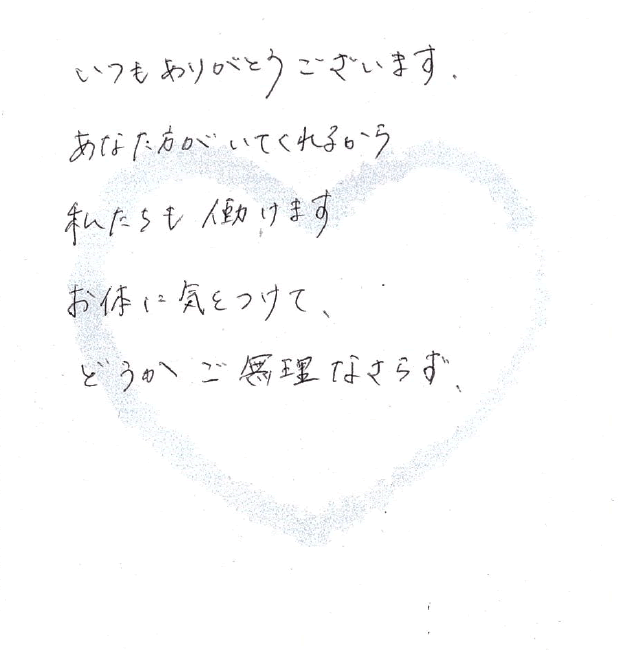 いつもありがとうございます.
あなた方がいてくれるから
私たちも働けます
お体に気をつけて、
どうかご無理なさらず、